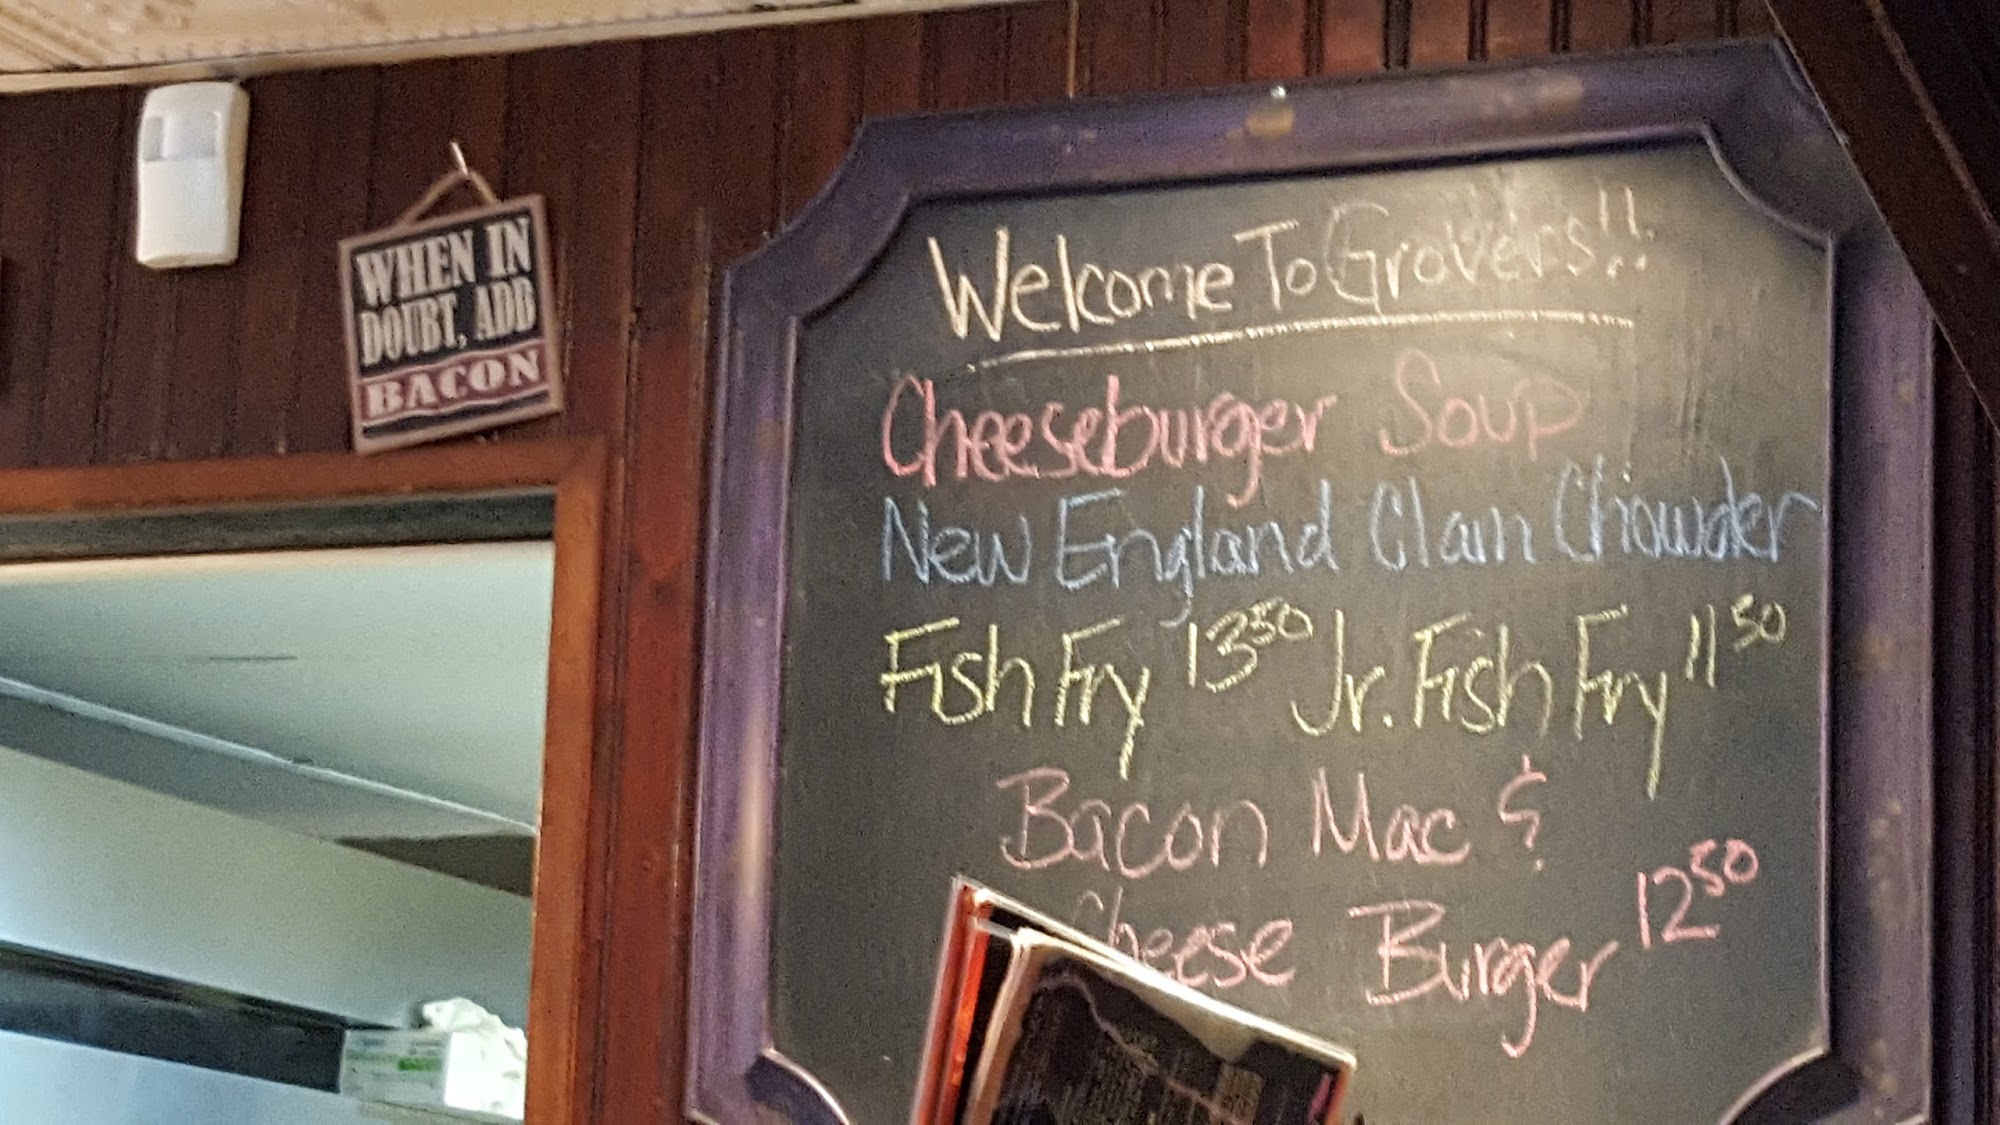 WHEN IN
DOUBT, ADD
BACON
Welcome To Grovers!!
Cheeseburger Soup
New England Clam Chowder
Fish Fry 13⁵⁰ Jr. Fish Fry 11⁵⁰
Bacon Mac &
Cheese Burger 12⁵⁰